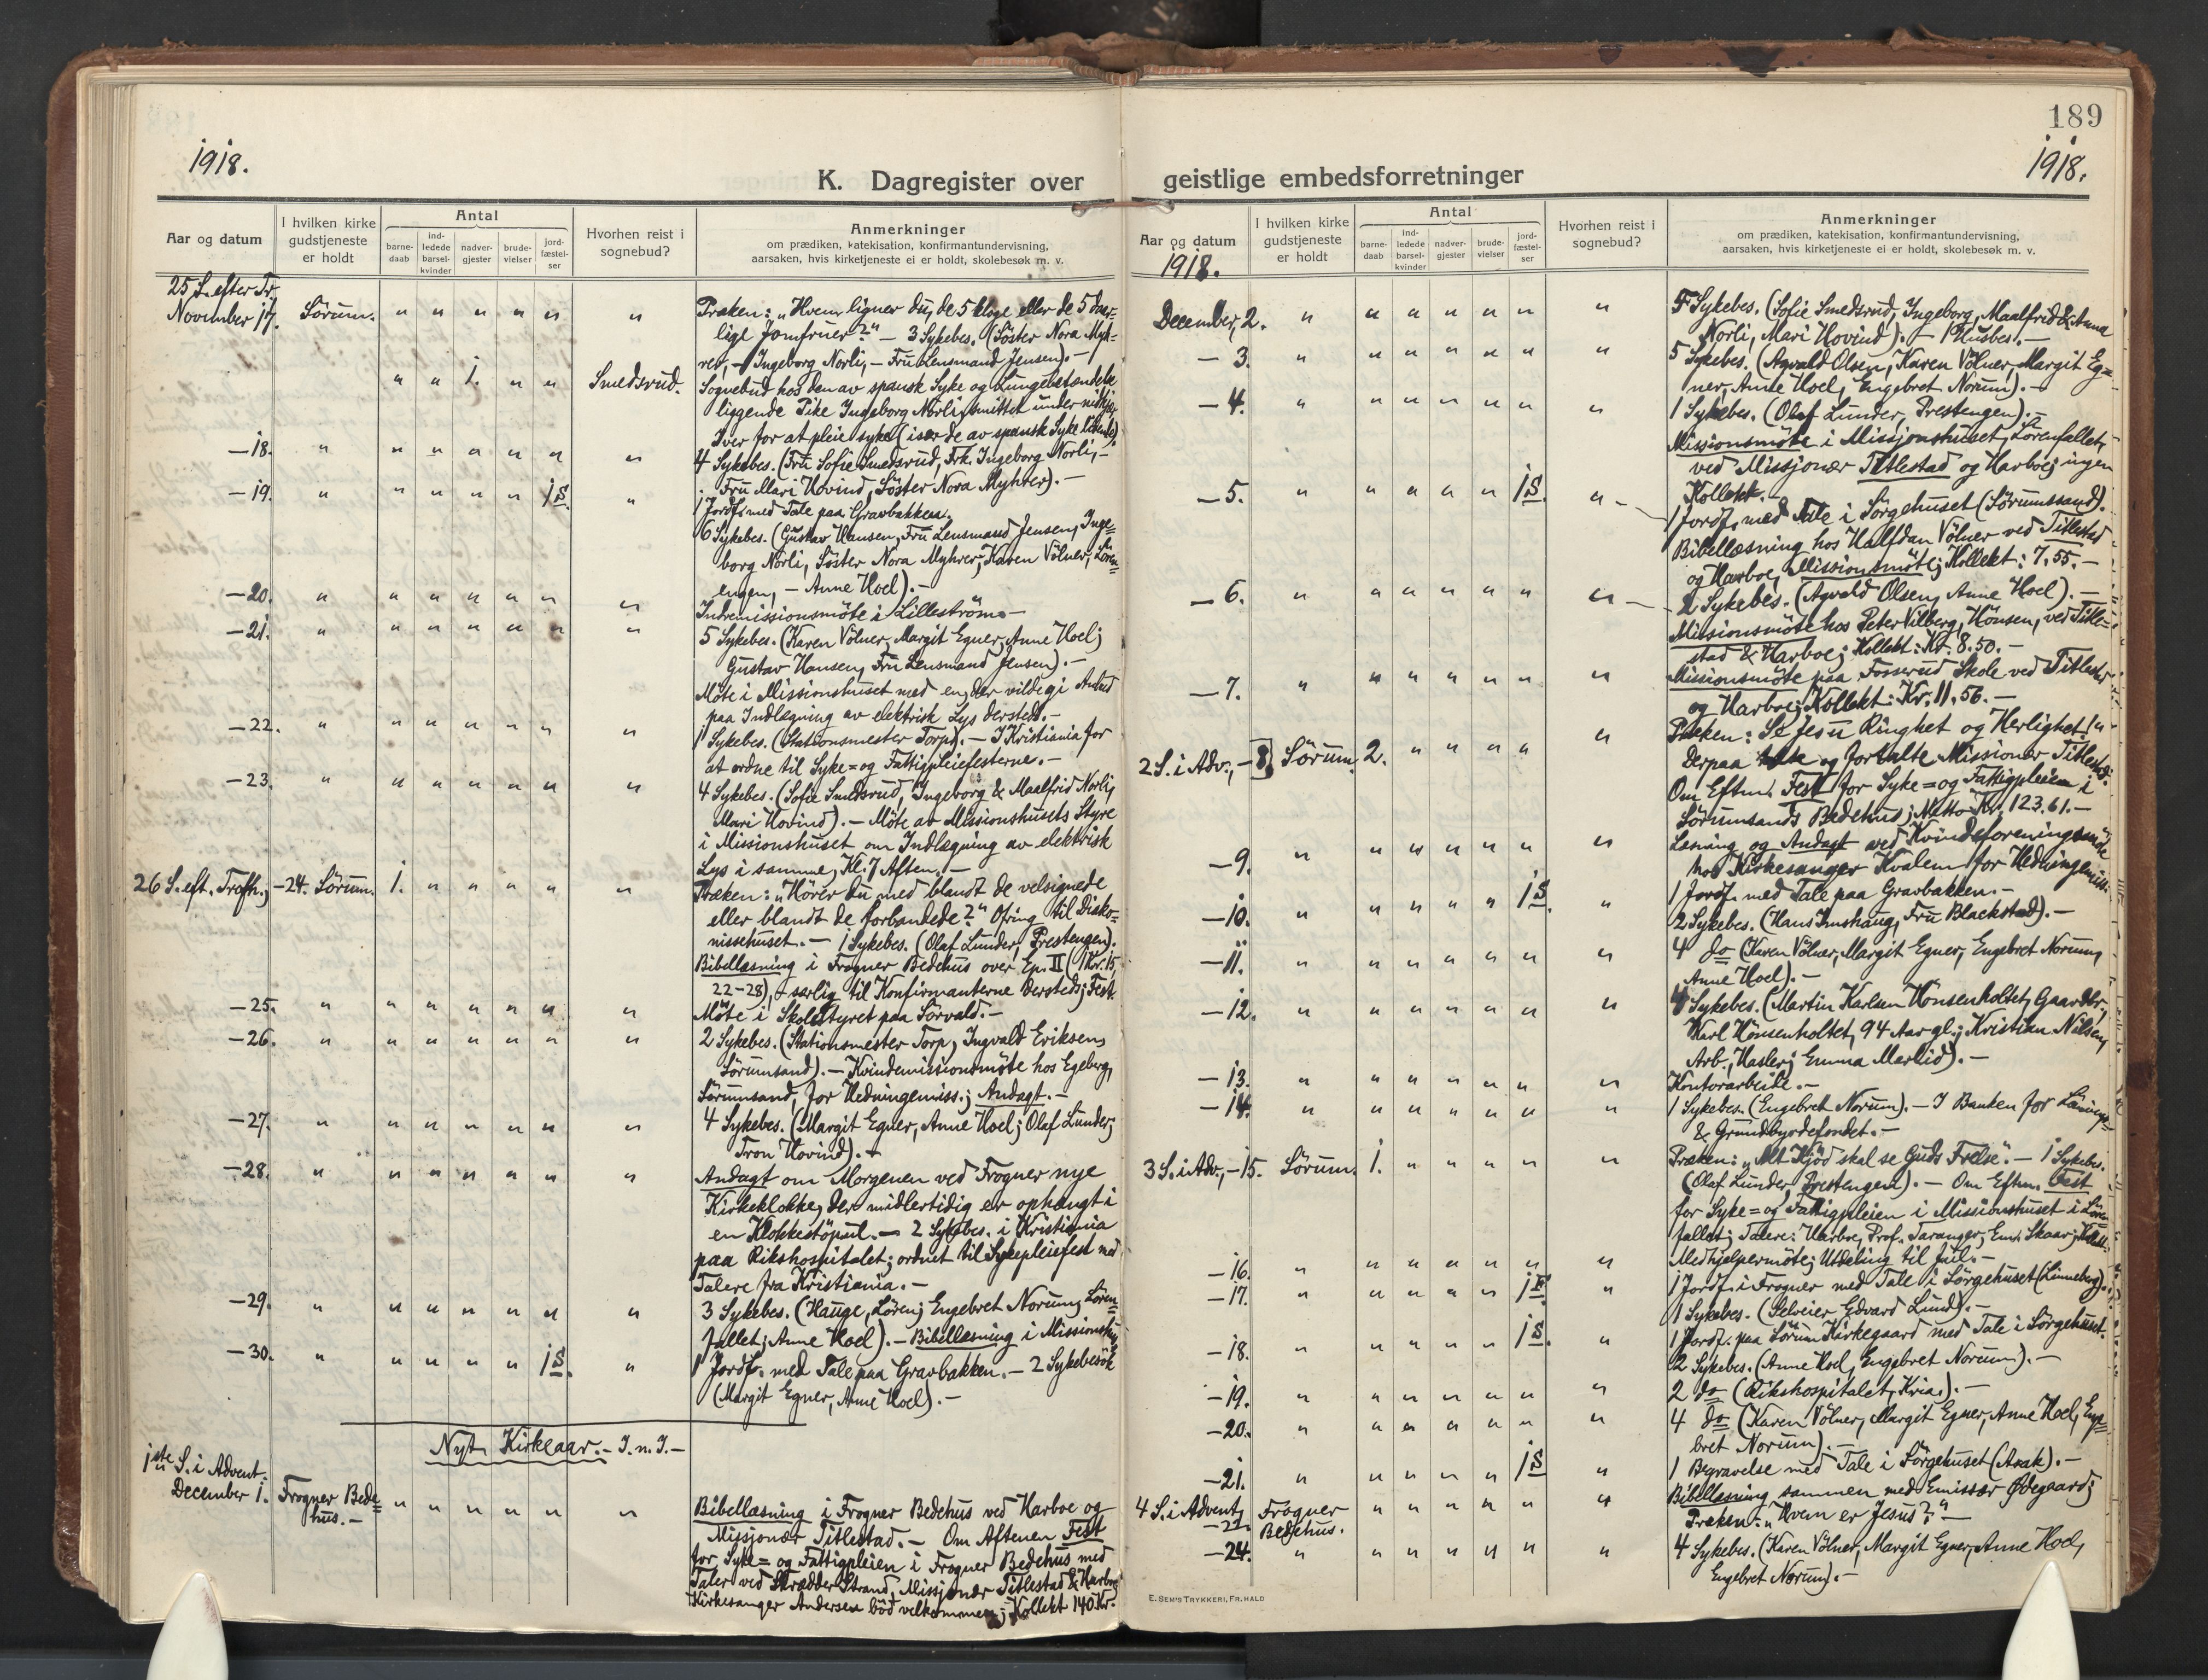 1918.
K. Dagregister over
Aar og datum
I hvilken kirke gudstjeneste er holdt
Antal
barne-daab
ind-ledede barsel-kvinder
nadver-gjester
brude-vielser
jord-fæstel-ser
Hvorhen reist i sognebud?
Anmerkninger
om prædiken, katekisation, konfirmantundervisning,
aarsaken, hvis kirketjeneste ei er holdt, skolebesøk m. v.
25 S. efter Tr.
November 17. Sörum. " " " " " " Præken: "Hvem ligner du, de 5 kloge eller de 5 daar-
lige Jomfruer?" — 3 Sykebes. (Söster Nora Myh-
rer, — Ingeborg Norli, — Fru Lensmand Jensen). —
" " 1. " " Smedsrud. Sognebud hos den av spansk Syke og Lungebetændelse
liggende Pike Ingeborg Norli, smittet under nidkjær
Iver for at pleie syke (især de av spansk Syke lidende).
—18. " " " " " " " 4 Sykebes. (Fru Sofie Smedsrud, Frk. Ingeborg Norli, —
Fru Mari Hovind, Söster Nora Myhrer). —
—19. " " " " " 1 S. " 1 Jordf. med Tale paa Gravbakken.
6 Sykebes. (Gustav Hansen, Fru Lensmand Jensen, Inge=
borg Norli, Söster Nora Myhrer, Karen Völner, Lören=
engen, — Anne Hoel). —
—20. " " " " " " " Indremissionsmöte i Lilleström. —
—21. " " " " " " " 5 Sykebes. (Karen Völner, Margit Egner, Anne Hoel;
Gustav Hansen, Fru Lensmand Jensen). —
Möte i Missionshuset med en, der vilde gi Anbud
paa Indlægning av elektrisk Lys dersteds. —
—22. " " " " " " " 1 Sykebes. (Stationsmester Torp). — I Kristiania for
at ordne til Syke= og Fattigpleiefesterne. —
—23. " " " " " " " 4 Sykebes. (Sofie Smedsrud, Ingeborg & Maalfrid Norli,
Mari Hovind). — Möte av Missionshusets Styre
i Missionshuset om Indlægning av elektrisk
Lys i samme, Kl. 7 Aften. —
26 S. eft. Trefh., —24. Sörum. 1. " " " " " Præken: "Hörer du med blandt de velsignede
eller blandt de forbandede?" Ofring til Diako=
nissehuset. — 1 Sykebes. (Olaf Lunder, Prestengen).
Bibellæsning i Frogner Bedehus over Ep. II (1 Kor. 15,
22-28), særlig til Konfirmanterne dersteds; Fest.
—25. " " " " " " " Möte i Skolestyret paa Sörvald. —
—26. " " " " " " " 2 Sykebes. (Stationsmester Torp, Ingvald Eriksen,
Sörumsand). — Kvindemissionsmöte hos Egeberg,
Sörumsand, for Hedningemiss.; Andagt. —
—27. " " " " " " " 4 Sykebes. (Margit Egner, Anne Hoel; Olaf Lunder;
Tron Hovind). —
—28. " " " " " " " Andagt om Morgenen ved Frogner nye
Kirkeklokke, der midlertidig er ophængt i
en Klokkestöpul. — 2 Sykebes. i Kristiania
paa Rikshospitalet; ordnet til Sykepleiefest med
Talere fra Kristiania. —
—29. " " " " " " " 3 Sykebes. (Hauge, Lören; Engebret Norum, Lören=
fallet; Anne Hoel). — Bibellæsning i Missionshus.
—30. " " " " " 1 S. " 1 Jordf. med Tale paa Gravbakken. — 2 Sykebesök
(Margit Egner, Anne Hoel). —
Nyt Kirkeaar. — I. n. J. —
1ste S. i Advent.
December 1. Frogner Bede= hus. — " " " " " " Bibellæsning i Frogner Bedehus ved Harboe og
Missjonær Titlestad. — Om Aftenen Fest
for Syke= og Fattigpleien i Frogner Bedehus med
Taler ved Skrædder Strand, Missjonær Titlestad & Harboe
Kirkesanger Andersen böd velkommen; Kollekt 140 Kr.
189
1918.
geistlige embedsforretninger
Aar og datum
1918.
I hvilken kirke gudstjeneste er holdt
Antal
barne-daab
ind-ledede barsel-kvinder
nadver-gjester
brude-vielser
jord-fæstel-ser
Hvorhen reist i sognebud?
Anmerkninger
om prædiken, katekisation, konfirmantundervisning,
aarsaken, hvis kirketjeneste ei er holdt, skolebesøk m. v.
December, 2. " " " " " " " 5 Sykebes. (Sofie Smedsrud, Ingeborg, Maalfrid & Anna
Norli, Mari Hovind). — 1 Husbes. —
— 3. " " " " " " " 5 Sykebes. (Agvald Olsen, Karen Völner, Margit Eg=
ner, Anne Hoel, Engebret Norum). —
— 4. " " " " " " " 1 Sykebes. (Olaf Lunder, Prestengen). —
Missionsmöte i Missjonshuset, Lörenfallet,
ved Missjonær Titlestad og Harboe; ingen
Kollekt. —
— 5. " " " " " 1 S. " 1 Jordf. med Tale i Sörgehuset (Sörumssand).
Bibellæsning hos Halfdan Völner ved Titlestad
og Harboe, Missionsmöte; Kollekt: 7,55. —
— 6. " " " " " " " 2 Sykebes. (Agvald Olsen, Anne Hoel). —
Missionsmöte hos Peter Vilberg, Hönsen, ved Title-
stad & Harboe; Kollekt: Kr. 8.50. —
— 7. " " " " " " " Missionsmöte paa Fosserud Skole ved Titlestad
og Harboe; Kollekt: Kr. 11,56. —
2 S. i Adv., — 8. Sörum. 2. " " " " " Præken: Se Jesu Ringhet og Herlighet!"
Derpaa talte og fortalte Missionær Titlestad.
Om Eftm. Fest for Syke= og Fattigpleien i
Sörumsands Bedehus; Netto Kr. 123.61. —
— 9. " " " " " " " Læsning og Andagt ved Kvindeforeningsmöte
hos Kirkesanger Kvalem for Hedningemiss.
—10. " " " " " 1 S. " 1 Jordf. med Tale paa Gravbakken. —
2 Sykebes. (Hans Imshaug, Fru Blackstad). —
—11. " " " " " " " 4 do (Karen Völner, Margit Egner, Engebret Norum,
Anne Hoel). —
—12. " " " " " " " 4 Sykebes. (Martin Karlsen Hönsenholtet, Gaardbr.,
Karl Hönsenholtet, 94 Aar gl.; Kristian Nilsen,
Arb., Hasler; Emma Merlid). —
—13. " " " " " " " Kontorarbeide. —
—14. " " " " " " " 1 Sykebes. (Engebret Norum). — I Banken for
& Grundbyrdefondet. —
3 S. i Adv., —15. Sörum. 1. " " " " " Præken: "Alt Kjöd skal se Guds Frelse". — 1 Sykebes.
(Olaf Lunder, Prestengen). — Om Eftm. Fest
for Syke= og Fattigpleien i Missionshuset i Lören
fallet; Talere: Harboe, Prof. Taranger, Em. Skaar;
—16. " " " " " " " Medhjelpermöte; Utdeling til Jul. —
—17. " " " " " 1 F. " 1 Jordf. i Frogner med Tale i Sörgehuset (Linneberg).
1 Sykebes. (Selveier Edvard Lund). —
—18. " " " " " 1 S. " 1 Jordf. paa Sörum Kirkegaard med Tale i Sörgehuset.
2 Sykebes. (Anne Hoel, Engebret Norum). —
—19. " " " " " " " 2 do (Rikshospitalet, Kria.). —
—20. " " " " " " " 4 do (Karen Völner, Margit Egner, Anne Hoel, Enge=
bret Norum). —
—21. " " " " " 1 S " 1 Begravelse med Tale i Sörgehuset (Asak). —
4 S. i Advent, —22. Frogner Bedehus. " " " " " " Bibellæsning sammen med Emissær Ødegaard;
Præken: "Hvem er Jesus?" —
—24. " " " " " " " 4 Sykebes. (Karen Völner, Margit Egner, Anne Hoel,
Engebret Norum). —
E. SEM'S TRYKKERI, FR.HALD